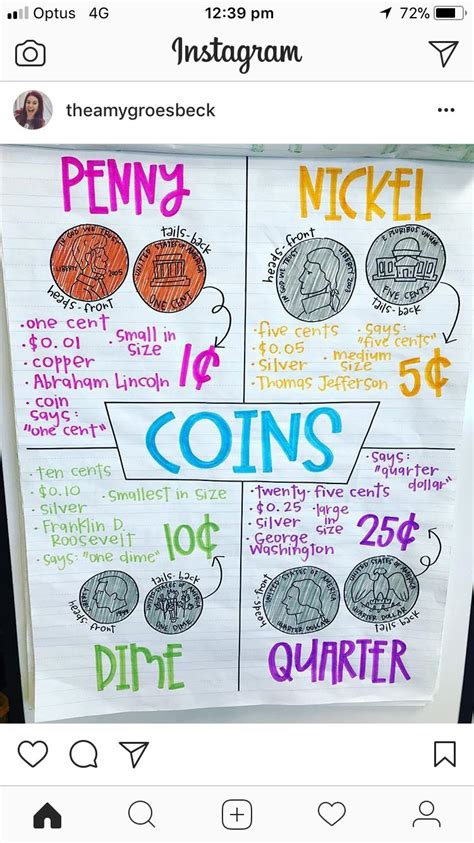 Optus 4G 12:39 pm 72%
Instagram
theamygroesbeck
PENNY
IN GOD WE TRUST
LIBERTY 2005
heads-front
tails-back
UNITED STATES OF AMERICA
ONE CENT
·one cent
·$0.01
·copper
·Abraham Lincoln
·coin
says:
"one cent"
·small in
size
1¢
NICKEL
heads-front
IN GOD WE TRUST
LIBERTY
E PLURIBUS UNUM
FIVE CENTS
tails-back
·five cents
·$0.05
·silver
·Thomas Jefferson
·says:
"five cents"
·medium
size
5¢
COINS
·ten cents
·$0.10
·silver
·Franklin D.
Roosevelt
·says: "one dime"
·smallest in size
10¢
tails-back
heads-front
UNITED STATES OF AMERICA
ONE DIME
DIME
·says:
"quarter
dollar"
·twenty-five cents
·$0.25
·silver
·George
Washington
·large
in
size
25¢
heads-front
UNITED STATES OF AMERICA
QUARTER DOLLAR
UNITED STATES OF AMERICA
QUARTER DOLLAR
tails back
QUARTER